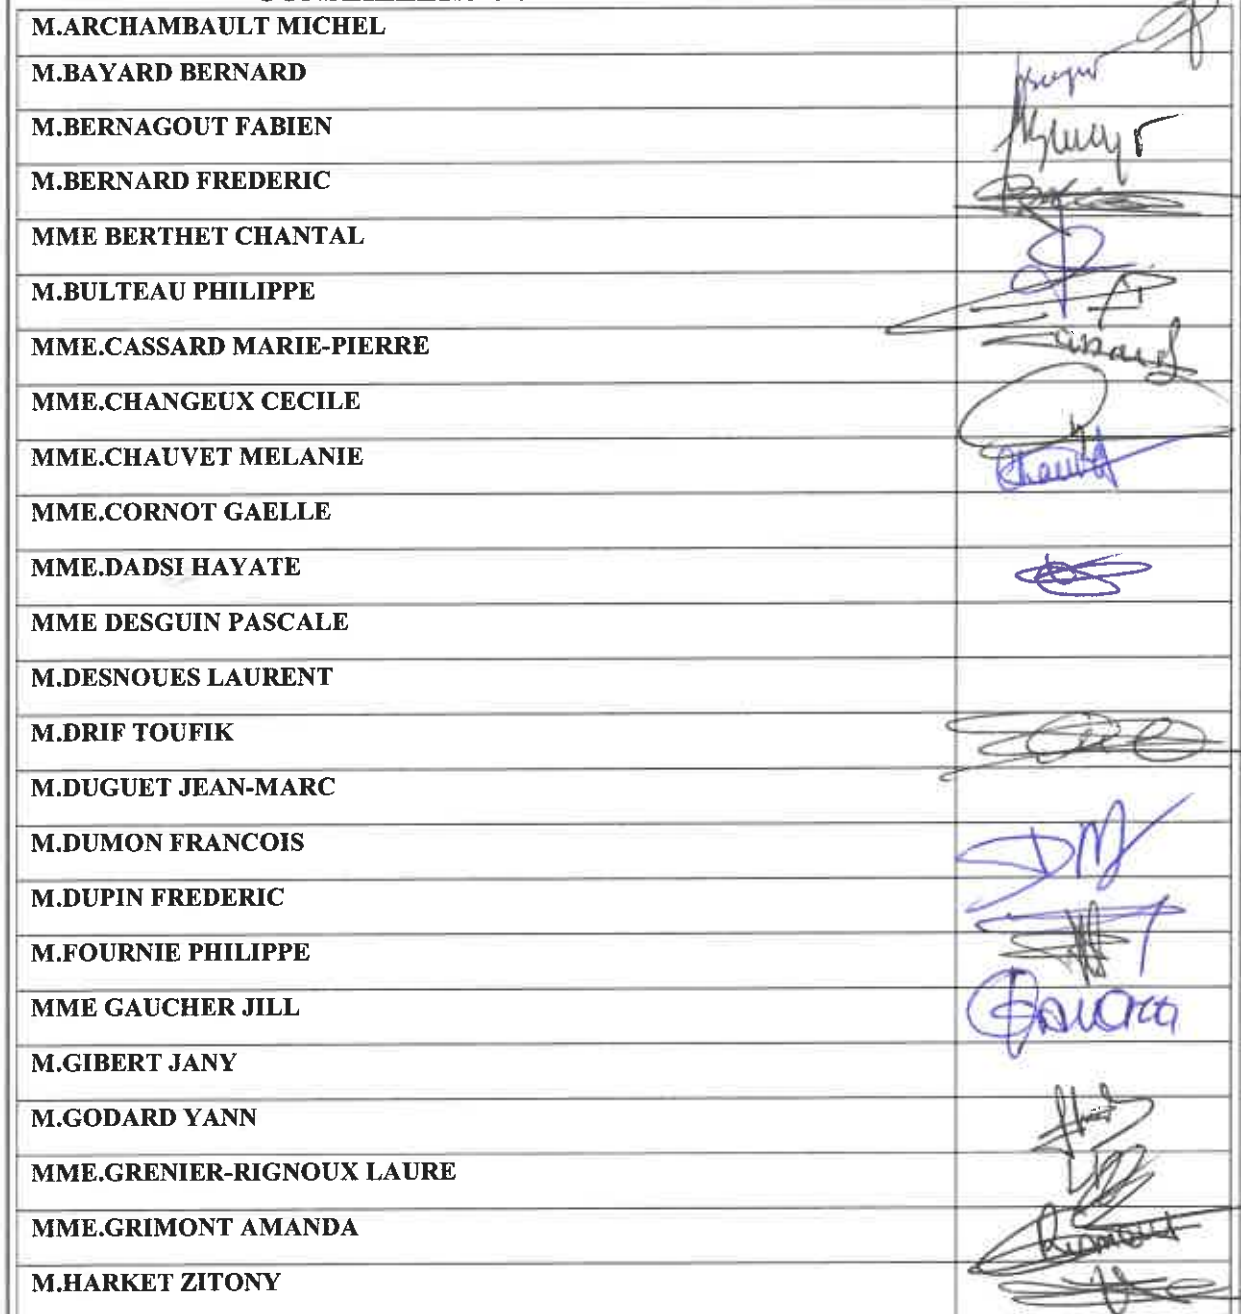 M.ARCHAMBAULT MICHEL
M.BAYARD BERNARD
M.BERNAGOUT FABIEN
M.BERNARD FREDERIC
MME BERTHET CHANTAL
M.BULTEAU PHILIPPE
MME.CASSARD MARIE-PIERRE
MME.CHANGEUX CECILE
MME.CHAUVET MELANIE
MME.CORNOT GAELLE
MME.DADSI HAYATE
MME DESGUIN PASCALE
M.DESNOUES LAURENT
M.DRIF TOUFIK
M.DUGUET JEAN-MARC
M.DUMON FRANCOIS
M.DUPIN FREDERIC
M.FOURNIE PHILIPPE
MME GAUCHER JILL
M.GIBERT JANY
M.GODARD YANN
MME.GRENIER-RIGNOUX LAURE
MME.GRIMONT AMANDA
M.HARKET ZITONY